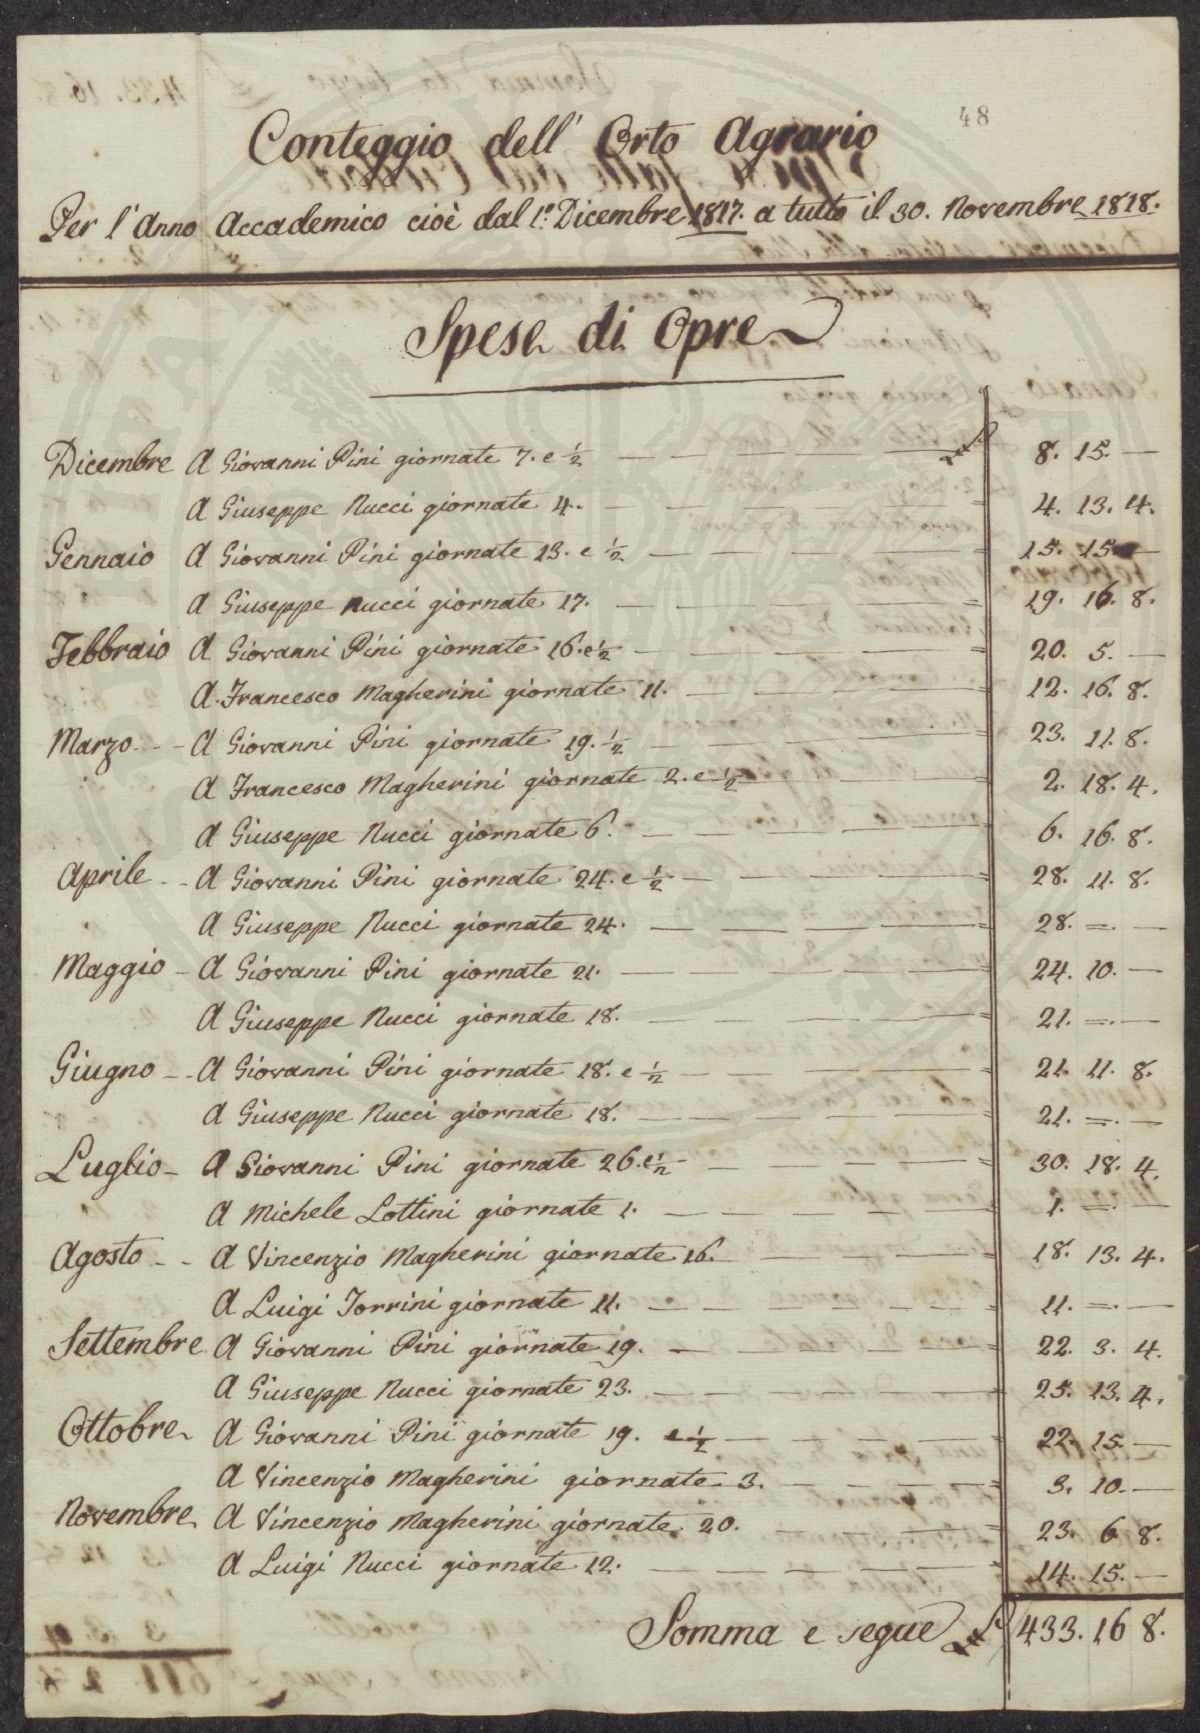 48
Conteggio dell' Orto Agrario
Per l'Anno Accademico cioè dal 1.° Dicembre 1817. a tutto il 30. Novembre 1818.
Spese di Opre
Dicembre A Giovanni Pini giornate 7. e ½ 8. 15. —
A Giuseppe Nucci giornate 4. 4. 13. 4.
Gennaio A Giovanni Pini giornate 13. e ½ 15. 15. —
A Giuseppe Nucci giornate 17. 19. 16. 8.
Febbraio A Giovanni Pini giornate 16. e ½ 20. 5. —
A Francesco Magherini giornate 11. 12. 16. 8.
Marzo A Giovanni Pini giornate 19. ½ 23. 11. 8.
A Francesco Magherini giornate 2. e ½ 2. 18. 4.
A Giuseppe Nucci giornate 6. 6. 16. 8.
Aprile A Giovanni Pini giornate 24. e ½ 28. 11. 8.
A Giuseppe Nucci giornate 24. 28. =. —
Maggio A Giovanni Pini giornate 21. 24. 10. —
A Giuseppe Nucci giornate 18. 21. =. —
Giugno A Giovanni Pini giornate 18. e ½ 21. 11. 8.
A Giuseppe Nucci giornate 18. 21. =. —
Luglio A Giovanni Pini giornate 26. e ½ 30. 18. 4.
A Michele Lottini giornate 1. 1. =. —
Agosto A Vincenzio Magherini giornate 16. 18. 13. 4.
A Luigi Torrini giornate 11. 11. =. —
Settembre A Giovanni Pini giornate 19. 22. 3. 4.
A Giuseppe Nucci giornate 23. 25. 13. 4.
Ottobre A Giovanni Pini giornate 19. e ½ 22. 15. —
A Vincenzio Magherini giornate 3. 3. 10. —
Novembre A Vincenzio Magherini giornate 20. 23. 6. 8.
A Luigi Nucci giornate 12. 14. 15. —
Somma e segue 433. 16 8.